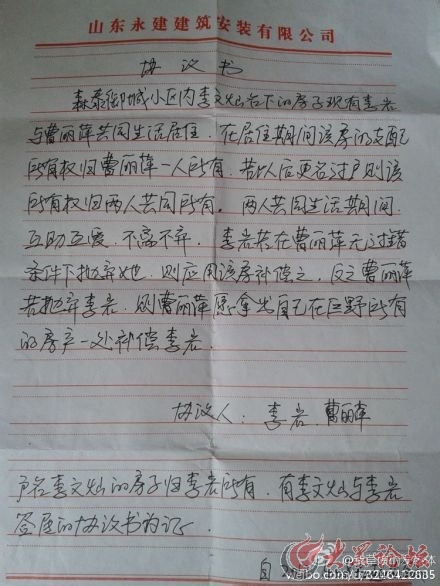 山东永建建筑安装有限公司
协议书
森泰御城小区内李文灿名下的房子现有李岩
与曹丽萍共同生活居住，在居住期间该房的支配
所有权归曹丽萍一人所有，若以后更名过户则该
所有权归两人共同所有。两人共同生活期间
互助互爱，不离不弃，李岩若在曹丽萍无过错
条件下抛弃她，则应用该房补偿之，反之曹丽萍
若抛弃李岩，则曹丽萍愿拿出自己在巨野所有
的房产一处补偿李岩。
协议人：李岩 曹丽萍
户名李文灿的房子归李岩所有，有李文灿与李岩
签庭的协议书为记
大众论坛